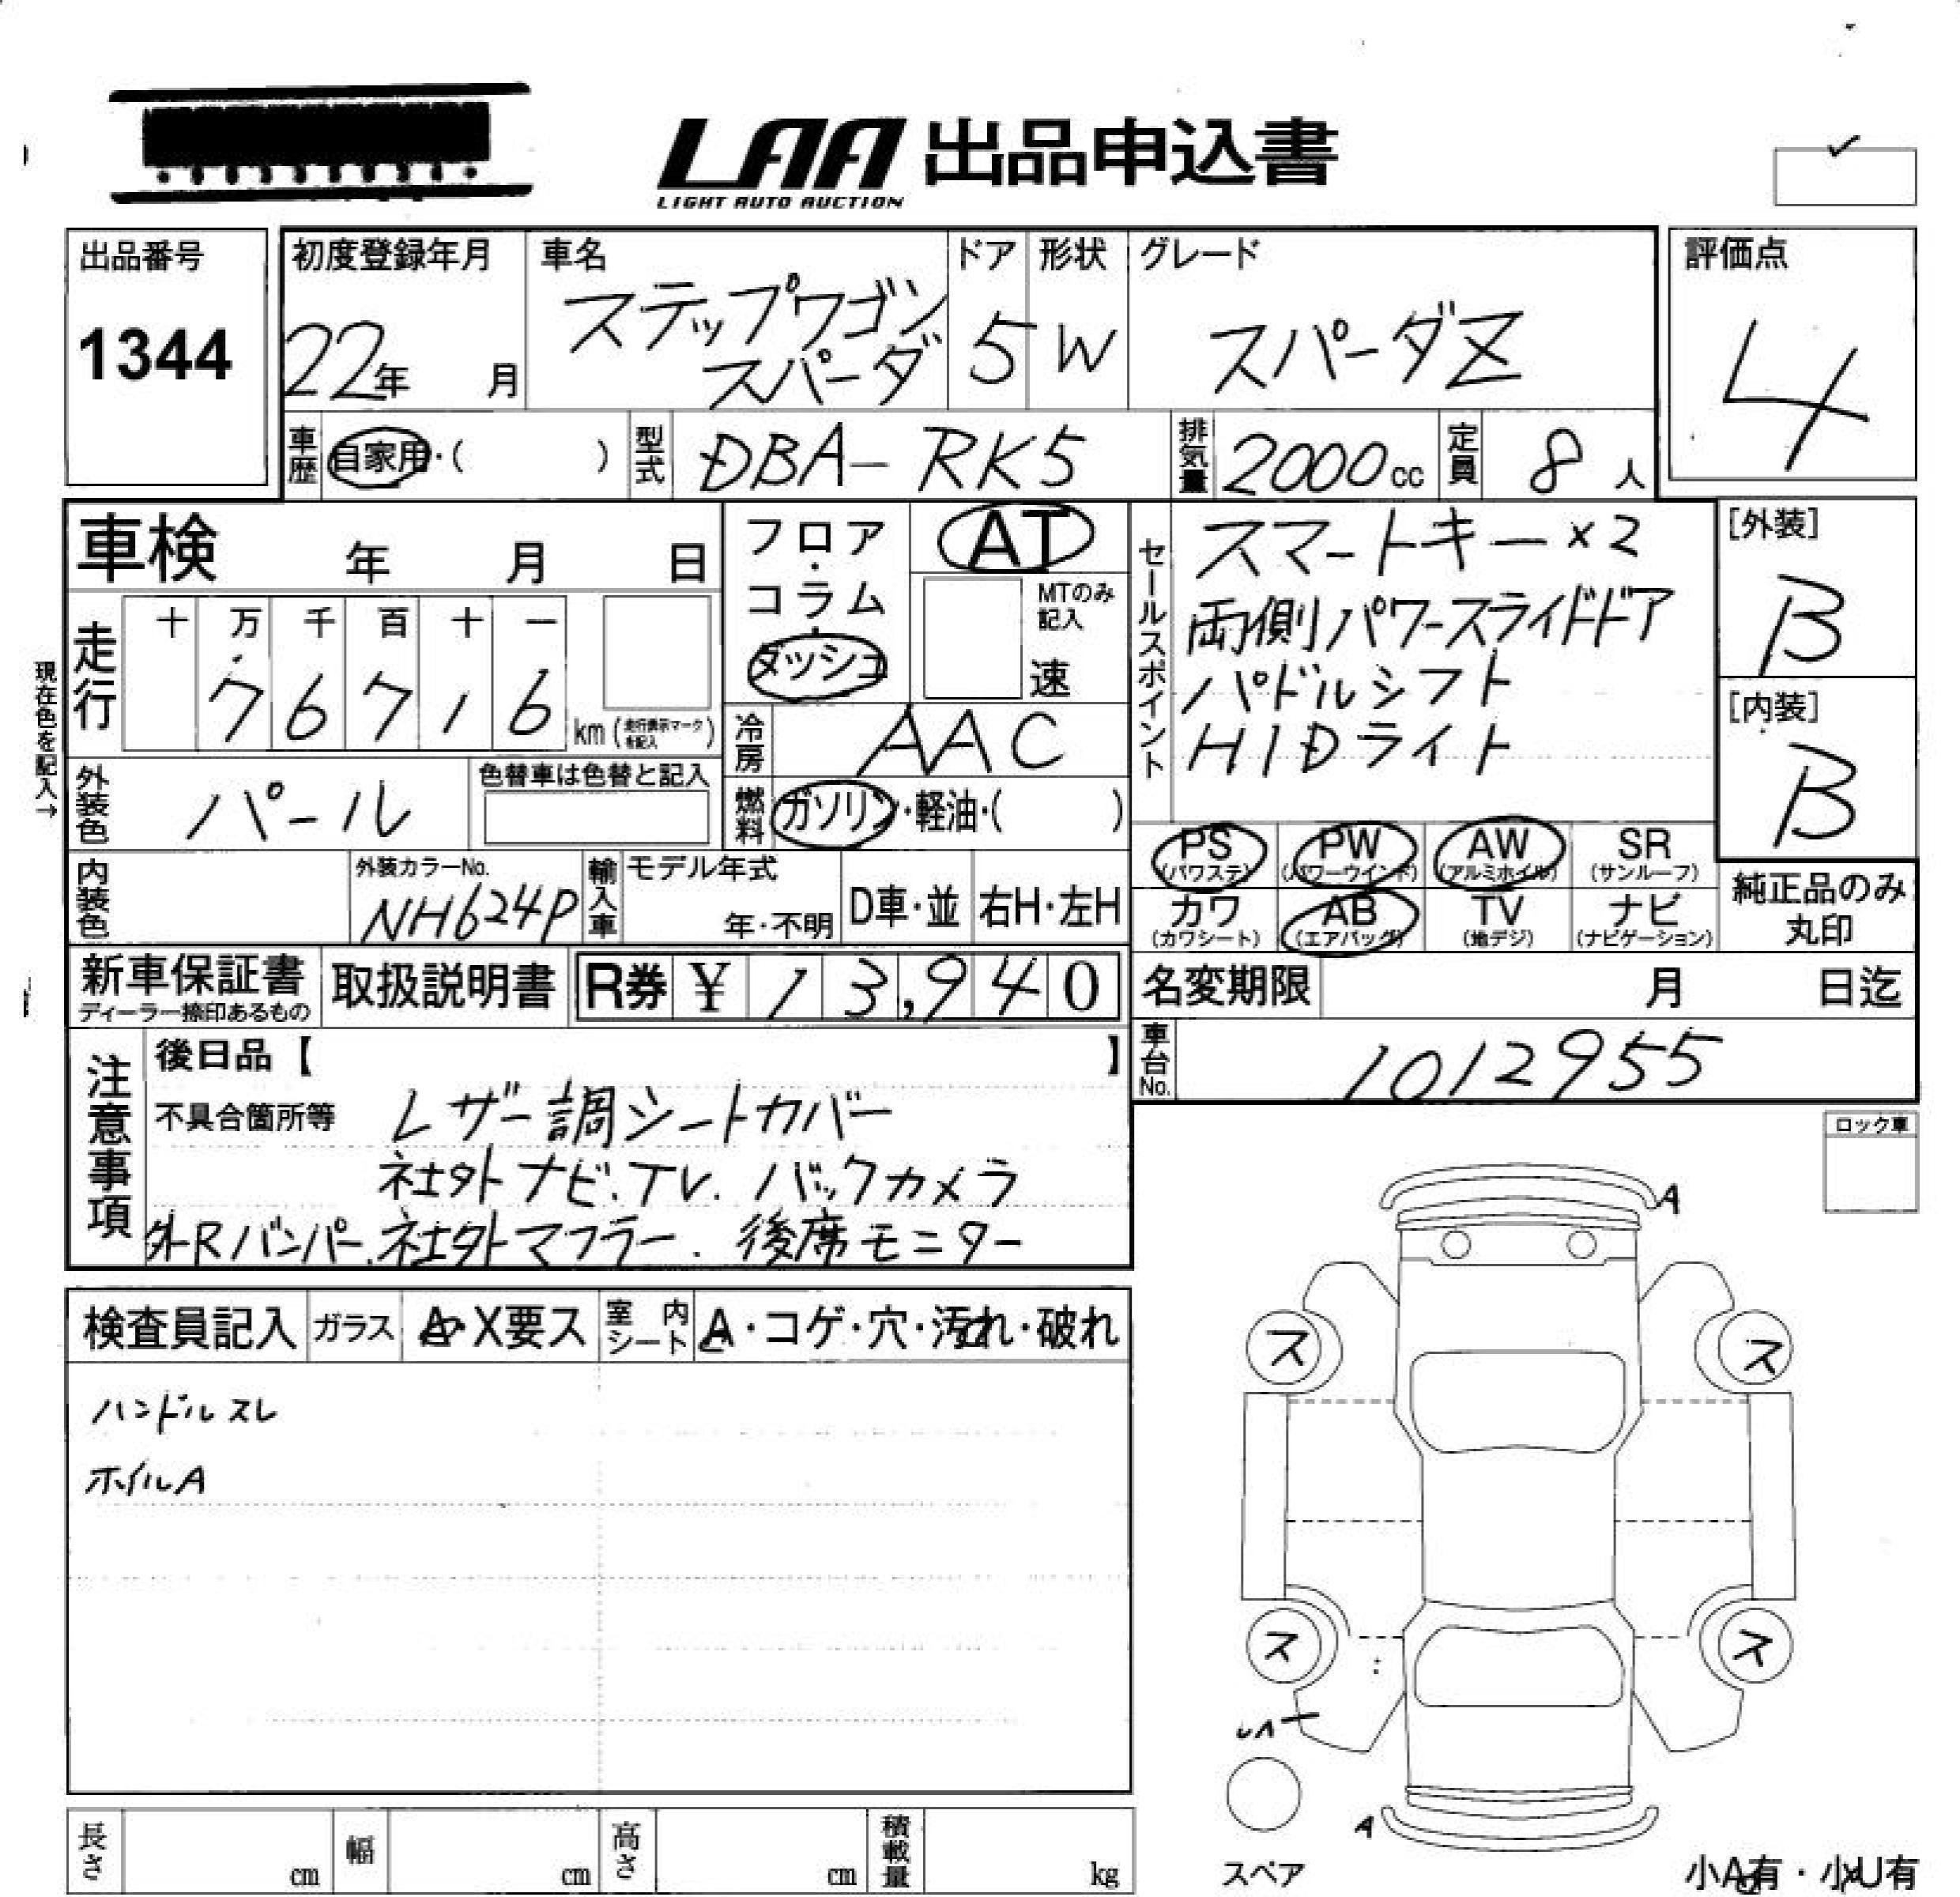 LAA 出品申込書
LIGHT AUTO AUCTION
出品番号
1344
初度登録年月
22年 月
車名
ステップワゴン
スパーダ
ドア
5
形状
W
グレード
スパーダZ
評価点
4
車歴 自家用・( )
型式 DBA-RK5
排気量 2000cc
定員 8人
車検 年 月 日
走行 十 万 千 百 十 一
7 6 7 1 6 km (走行表示マークを記入)
現在色を記入→
外装色 パール
色替車は色替と記入
内装色
外装カラーNo.
NH624P
輸入車 モデル年式
年・不明 D車・並 右H・左H
フロア・コラム・ダッシュ
AT
MTのみ記入
速
冷房 AAC
燃料 ガソリン・軽油・( )
セールスポイント
スマートキー×2
両側パワースライドドア
パドルシフト
HIDライト
[外装]
B
[内装]
B
PS (パワステ) PW (パワーウインド) AW (アルミホイル) SR (サンルーフ)
カワ (カワシート) AB (エアバッグ) TV (地デジ) ナビ (ナビゲーション)
純正品のみ
丸印
新車保証書
ディーラー捺印あるもの
取扱説明書
R券 ¥ 13,940
名変期限 月 日迄
車台No. 1012955
注意事項
後日品【 】
不具合箇所等 レザー調シートカバー
社外ナビ.TV.バックカメラ
外Rバンパー.社外マフラー.後席モニター
ロック車
検査員記入 ガラス A・X要ス 室内シート A・コゲ・穴・汚れ・破れ
ハンドルスレ
ホイルA
A
ス ス
ス ス
A
スペア
小A有・小U有
長さ cm 幅 cm 高さ cm 積載量 kg